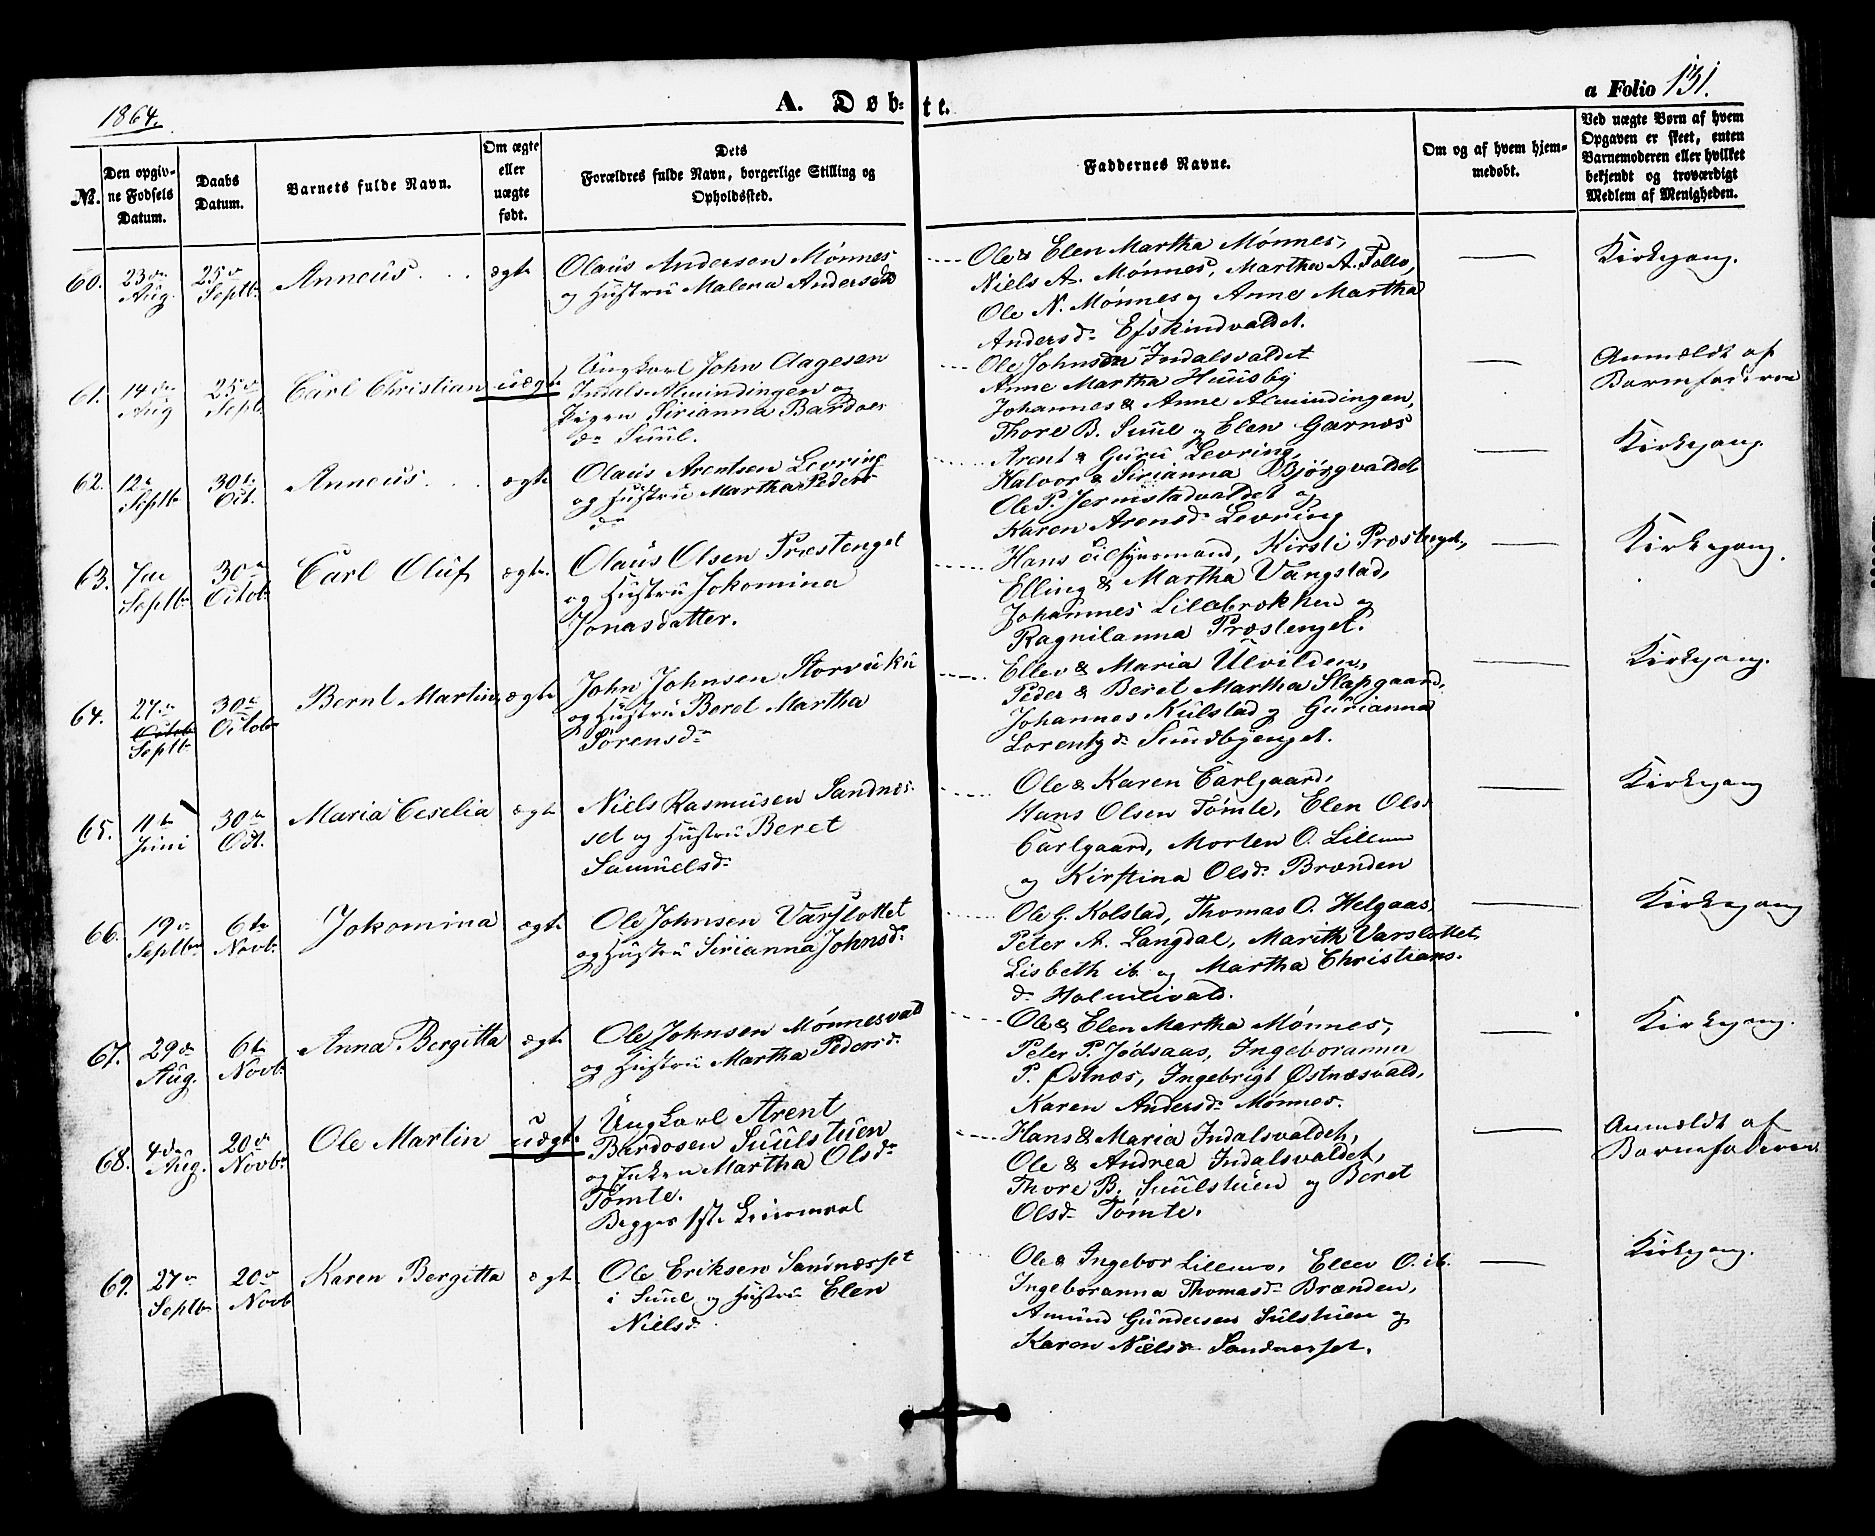 1864.
A. Døb-
te.
a Folio 131.
№.
Den opgiv-
ne Fødsels
Datum.
Daabs
Datum.
Barnets fulde Navn.
Om ægte
eller
uægte
født.
Dets
Forældres fulde Navn, borgerlige Stilling og
Opholdssted.
Faddernes Navne.
Om og af hvem hjem-
medøbt.
Ved uægte Børn af hvem
Opgaven er skeet, enten
Barnemoderen eller hvilket
bekjendt og troværdigt
Medlem af Menigheden.
60.
23de
Aug.
25de
Septbr
Anneus
ægte
Olaus Andersen Mönnes
og Hustru Malena Andersd
Ole & Elen Martha Mönnes,
Niels A. Mönnes, Martha A. Follo,
Ole N. Mönnes og Anne Martha
Andersdr Efskindvaldet.
Kirkegang.
61.
14de
Aug
25de
Septb.
Carl Christian
uægte
Ungkarl John Aagesen
Indals Almindingen og
Pigen Sirianna Bardoes
dr Suul.
Ole Johnsen Indalsvaldet
Anne Martha Huusby
Johannes & Anne Almindingen,
Thore B. Suul og Elen Garnæs
Anmeldt af
Barnefaderen
62.
12te
Septbr
30te
Oct.
Anneus
ægte
Olaus Arentsen Levring
og Hustru Martha Peders
dr
Arent & Guru Levring,
Halvor & Sirianna Bjørgvaldet
Ole P. Jermstadvaldet og
Karen Arensdr Levring
Kirkegang.
63.
7de
Septbr
30te
Octobr
Carl Oluf
ægte.
Olaus Olsen Præstenget
og Hustru Jokomina
Jonasdatter.
Hans Eilfynsmand, Kirsti Præstenget,
Elling & Martha Vangstad,
Johannes Lillebrokken og
Ragnilanna Præstenget.
Kirkegang.
64.
27de
Octobr
Septbr
30te
Octobr
Bernt Martin,
ægte
John Johnsen Storvuku
og Hustru Beret Martha
Sörensdr
Ellev & Maria Ulvilden,
Peder & Beret Martha Slapgaard,
Johannes Kulstad og Gurianna
Lorentzdr Sundbyenget.
Kirkegang.
65.
11te
Juni
30te
Oct.
Maria Ceselia
ægte
Niels Rasmusen Sandnes-
set og Hustru Beret
Samuelsdr
Ole & Karen Carlgaard,
Hans Olsen Tömte, Elen Olsd
Carlgaard, Morten O. Lillemo
og Kirstina Olsdr Brænden
Kirkegang
66.
19de
Septbr
6te
Novbr
Jokomina
ægte
Ole Johnsen Varslottet
og Hustru Sirianna Johnsdr
Ole G. Kolstad, Thomas O. Helgaas,
Peter A. Langdal, Marith Varslottet,
Lisbeth ib. og Martha Christians-
dr Holmlivald.
Kirkegang
67.
29de
Aug.
6te
Novbr
Anna Bergitta
ægte
Ole Johnsen Mönnesvad
og Hustru Martha Pedersdr
Ole & Elen Martha Mönnes,
Peter P. Jødsaas, Ingeboranna
P. Østnæs, Ingebrigt Østnæsvald,
Karen Andersdr Mönnes.
Kirkegang.
68.
4de
Aug.
20de
Novbr
Ole Martin
uægte
Ungkarl Arent
Bardosen Suulstuen
og Enken Martha Olsdr
Tömte.
Begges 1ste Leiermaal
Hans & Maria Indalsvaldet,
Ole & Andrea Indalsvaldet,
Thore B. Suulstuen og Beret
Olsdr Tömte.
Anmeldt af
Barnefaderen
69.
27de
Septbr
20de
Novb
Karen Bergitta
ægte
Ole Eriksen Sandnæsset
i Suul og Hustru Elen
Nielsdr
Ole & Ingebor Lillemo, Ellev O. ib.
Ingeboranna Thomasdr Brænden,
Amund Gundersen Sulstuen og
Karen Nielsdr Sandnæsset.
Kirkegang.